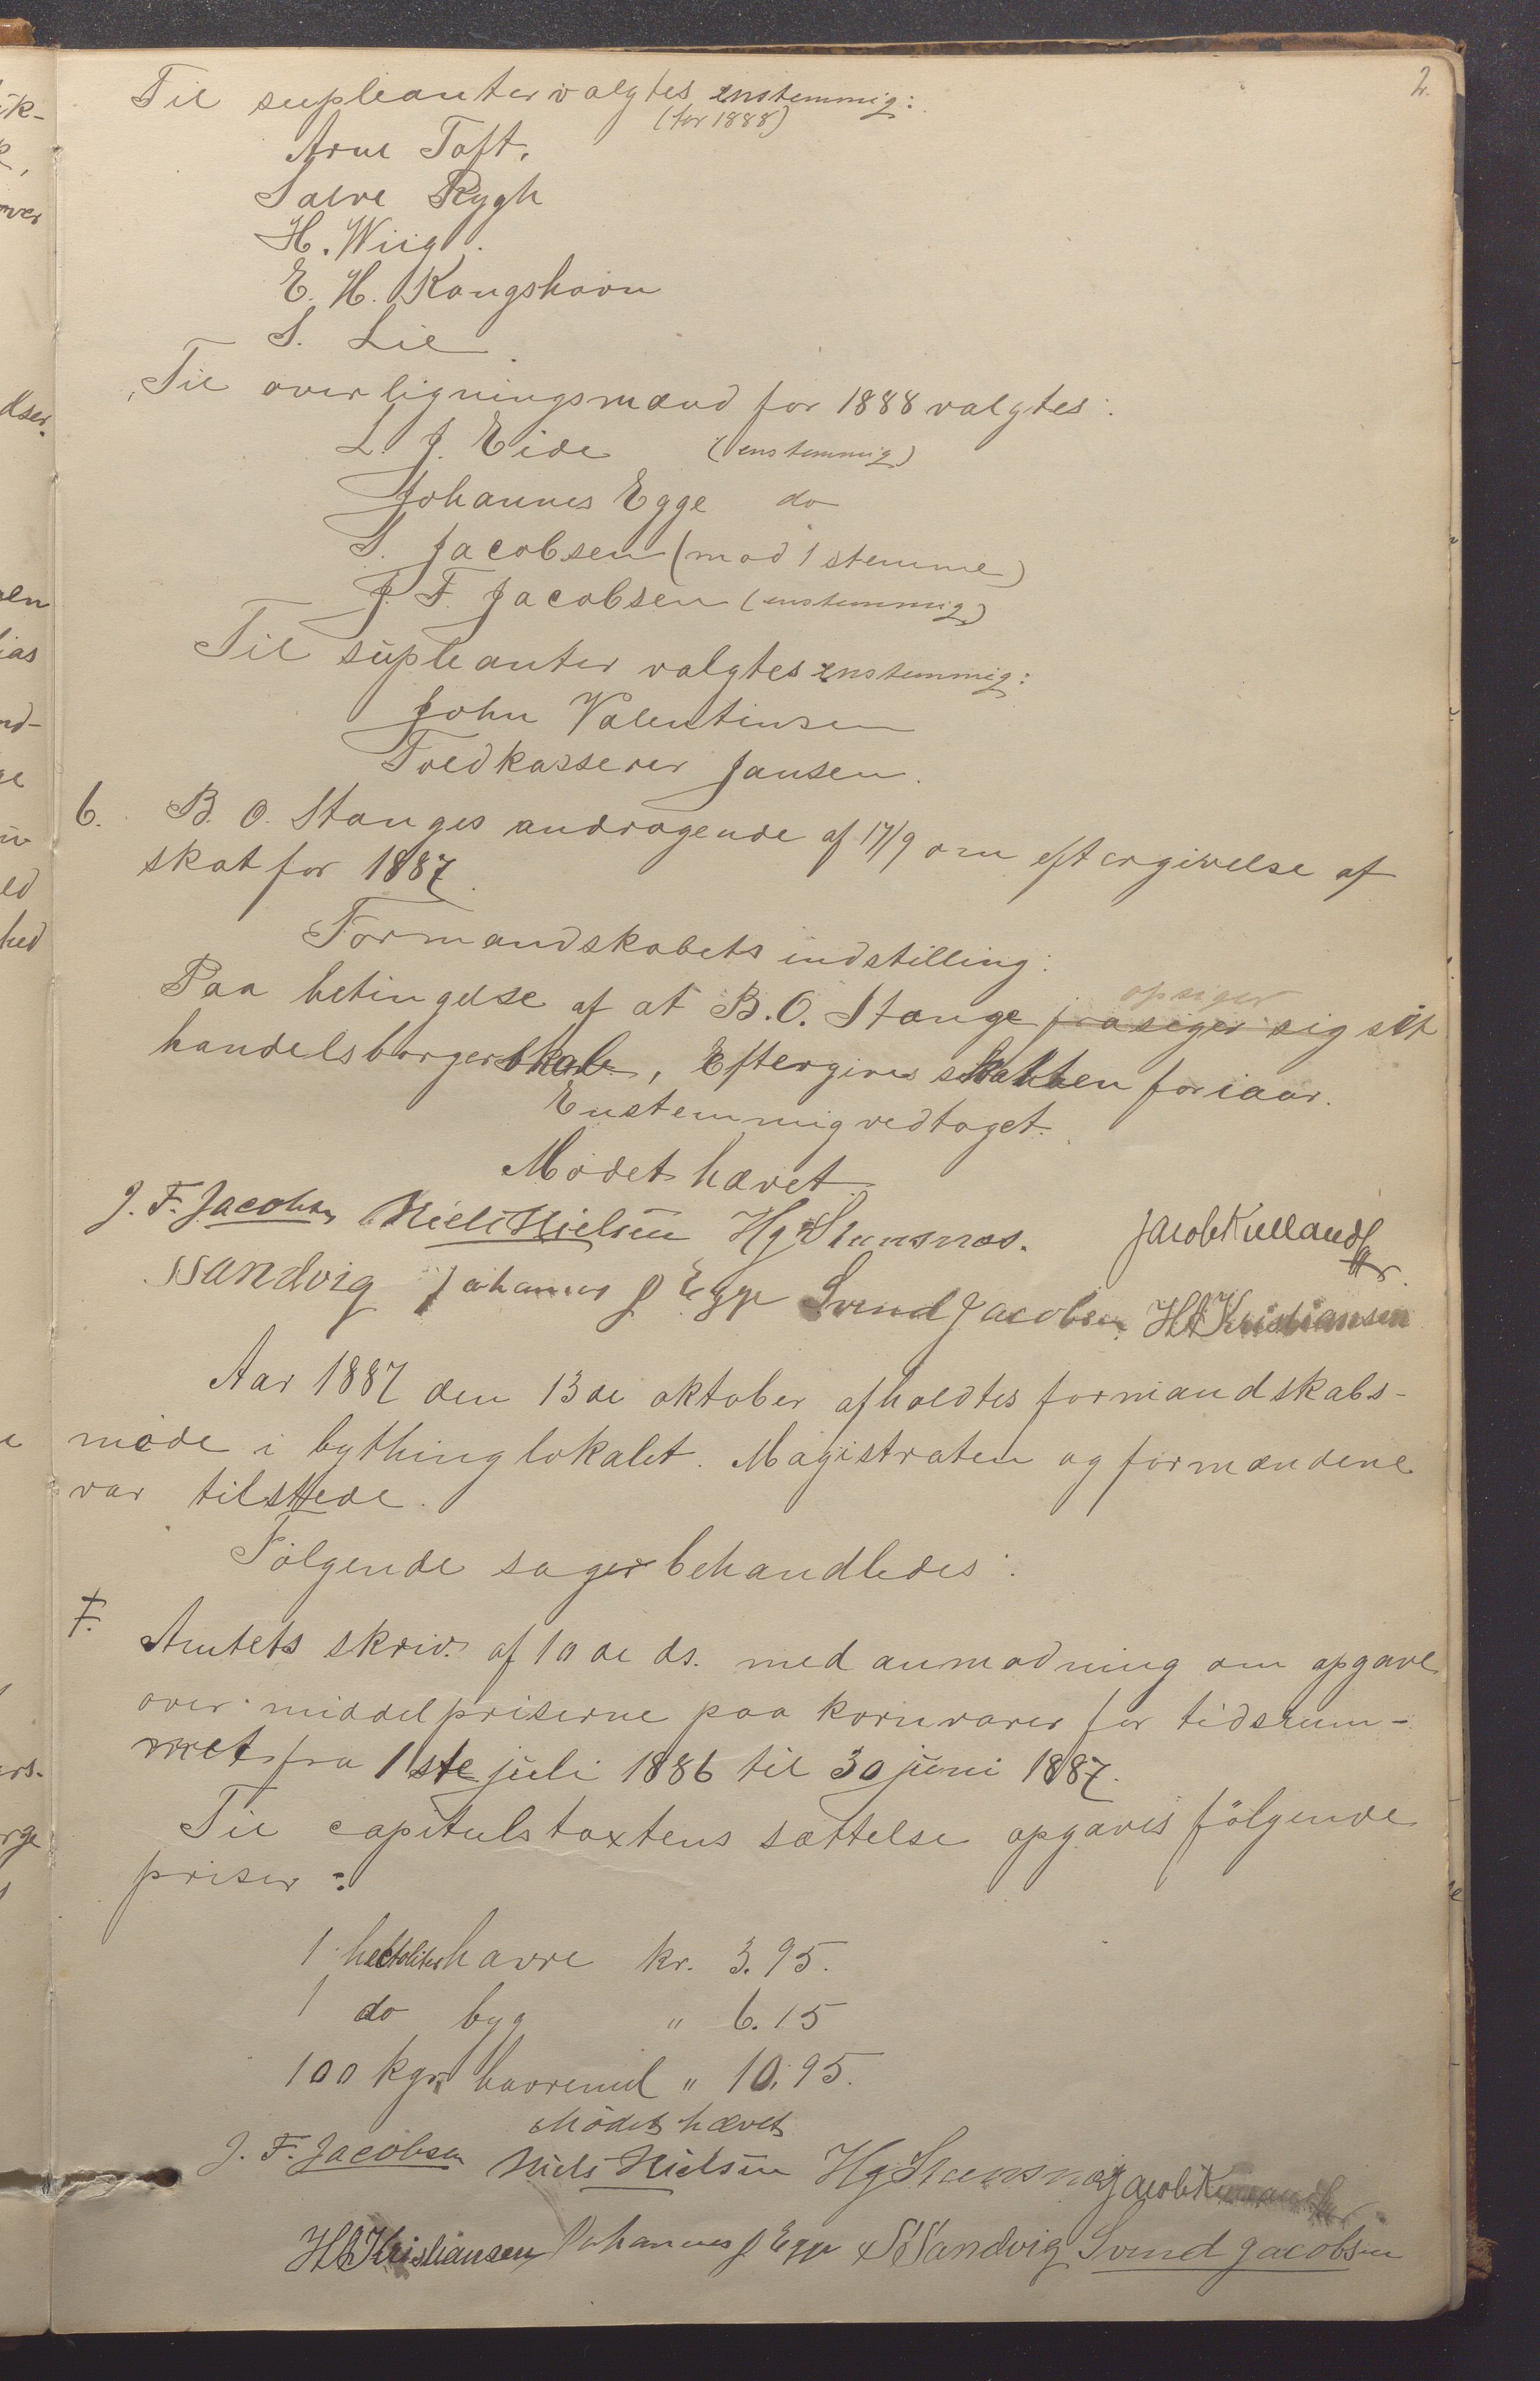 2.
Til supleanter valgtes enstemmig:
(for 1888)
Arne Toft.
Salve Rygh
H. Wiig.
E. H. Kongshavn
S. Lie
Til overligningsmænd for 1888 valgtes:
L. J. Eide (enstemmig)
Johannes Egge do
S. Jacobsen (mod 1 stemme)
J. F. Jacobsen (enstemmig)
Til supleanter valgtes enstemmig:
John Valentinsen
Toldkasserer Jansen.
6. B. O. Stanges andragende af 17/9 om eftergivelse af
skat for 1887.
Formandskabets indstilling:
opsiger
Paa betingelse af at B. O. Stange frasiger sig sit
handelsborgerskab, Eftergives skatten for iaar.
Enstemmig vedtaget.
Mødet hævet.
J. F. Jacobsen Niels Nielsen Hg Stensnæs. Jacob Kielland
SSandvig Johannes J Egge Svend Jacobsen HAKristiansen
Aar 1887 den 13de oktober afholdtes formandskabs-
møde i bythinglokalet. Magistraten og formændene
var tilstede.
Følgende sager behandledes:
7. Amtets skriv. af 10de ds. med anmodning om opgave
over middelpriserne paa kornvarer for tidsrum-
met fra 1ste juli 1886 til 30 juni 1887.
Til capitulstaxtens sættelse opgaves følgende
priser:
1 hectoliter havre kr. 3.95.
1 do byg " 6.15
100 kgr. havremel " 10.95.
Mødet hævet
J. F. Jacobsen Niels Nielsen Hg Stensnæs Jacob Kielland
HAKristiansen Johannes J Egge SSandvig Svend Jacobsen